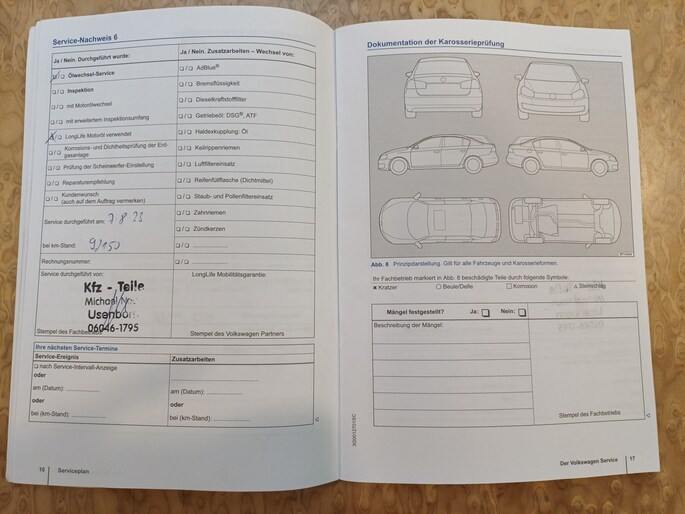 Service-Nachweis 6
Ja / Nein. Durchgeführt wurde:
Ölwechsel-Service
Inspektion
mit Motorölwechsel
mit erweitertem Inspektionsumfang
LongLife Motoröl verwendet
Korrosions- und Dichtheitsprüfung der Erd-
gasanlage
Prüfung der Scheinwerfer-Einstellung
Reparaturempfehlung
Kundenwunsch
(auch auf dem Auftrag vermerken)
Service durchgeführt am: 7 8 23
bei km-Stand:
Rechnungsnummer:
Service durchgeführt von:
Kfz - Teile
Michael
Usenborn
06046-1795
Stempel des Fachbetriebs
Ja / Nein. Zusatzarbeiten – Wechsel von:
AdBlue®
Bremsflüssigkeit
Dieselkraftstofffilter
Getriebeöl: DSG®, ATF
Haldexkupplung: Öl
Keilrippenriemen
Luftfiltereinsatz
Reifenfüllflasche (Dichtmittel)
Staub- und Pollenfiltereinsatz
Zahnriemen
Zündkerzen
LongLife Mobilitätsgarantie:
Stempel des Volkswagen Partners
Ihre nächsten Service-Termine
Service-Ereignis
nach Service-Intervall-Anzeige
oder
am (Datum):
oder
bei (km-Stand):
Zusatzarbeiten
am (Datum):
oder
bei (km-Stand):
16 Serviceplan
Dokumentation der Karosserieprüfung
Abb. 8 Prinzipdarstellung. Gilt für alle Fahrzeuge und Karosserieformen.
Ihr Fachbetrieb markiert in Abb. 8 beschädigte Teile durch folgende Symbole:
Kratzer Beule/Delle Korrosion Steinschlag
Mängel festgestellt? Ja: Nein:
Beschreibung der Mängel:
Stempel des Fachbetriebs
Der Volkswagen Service 17